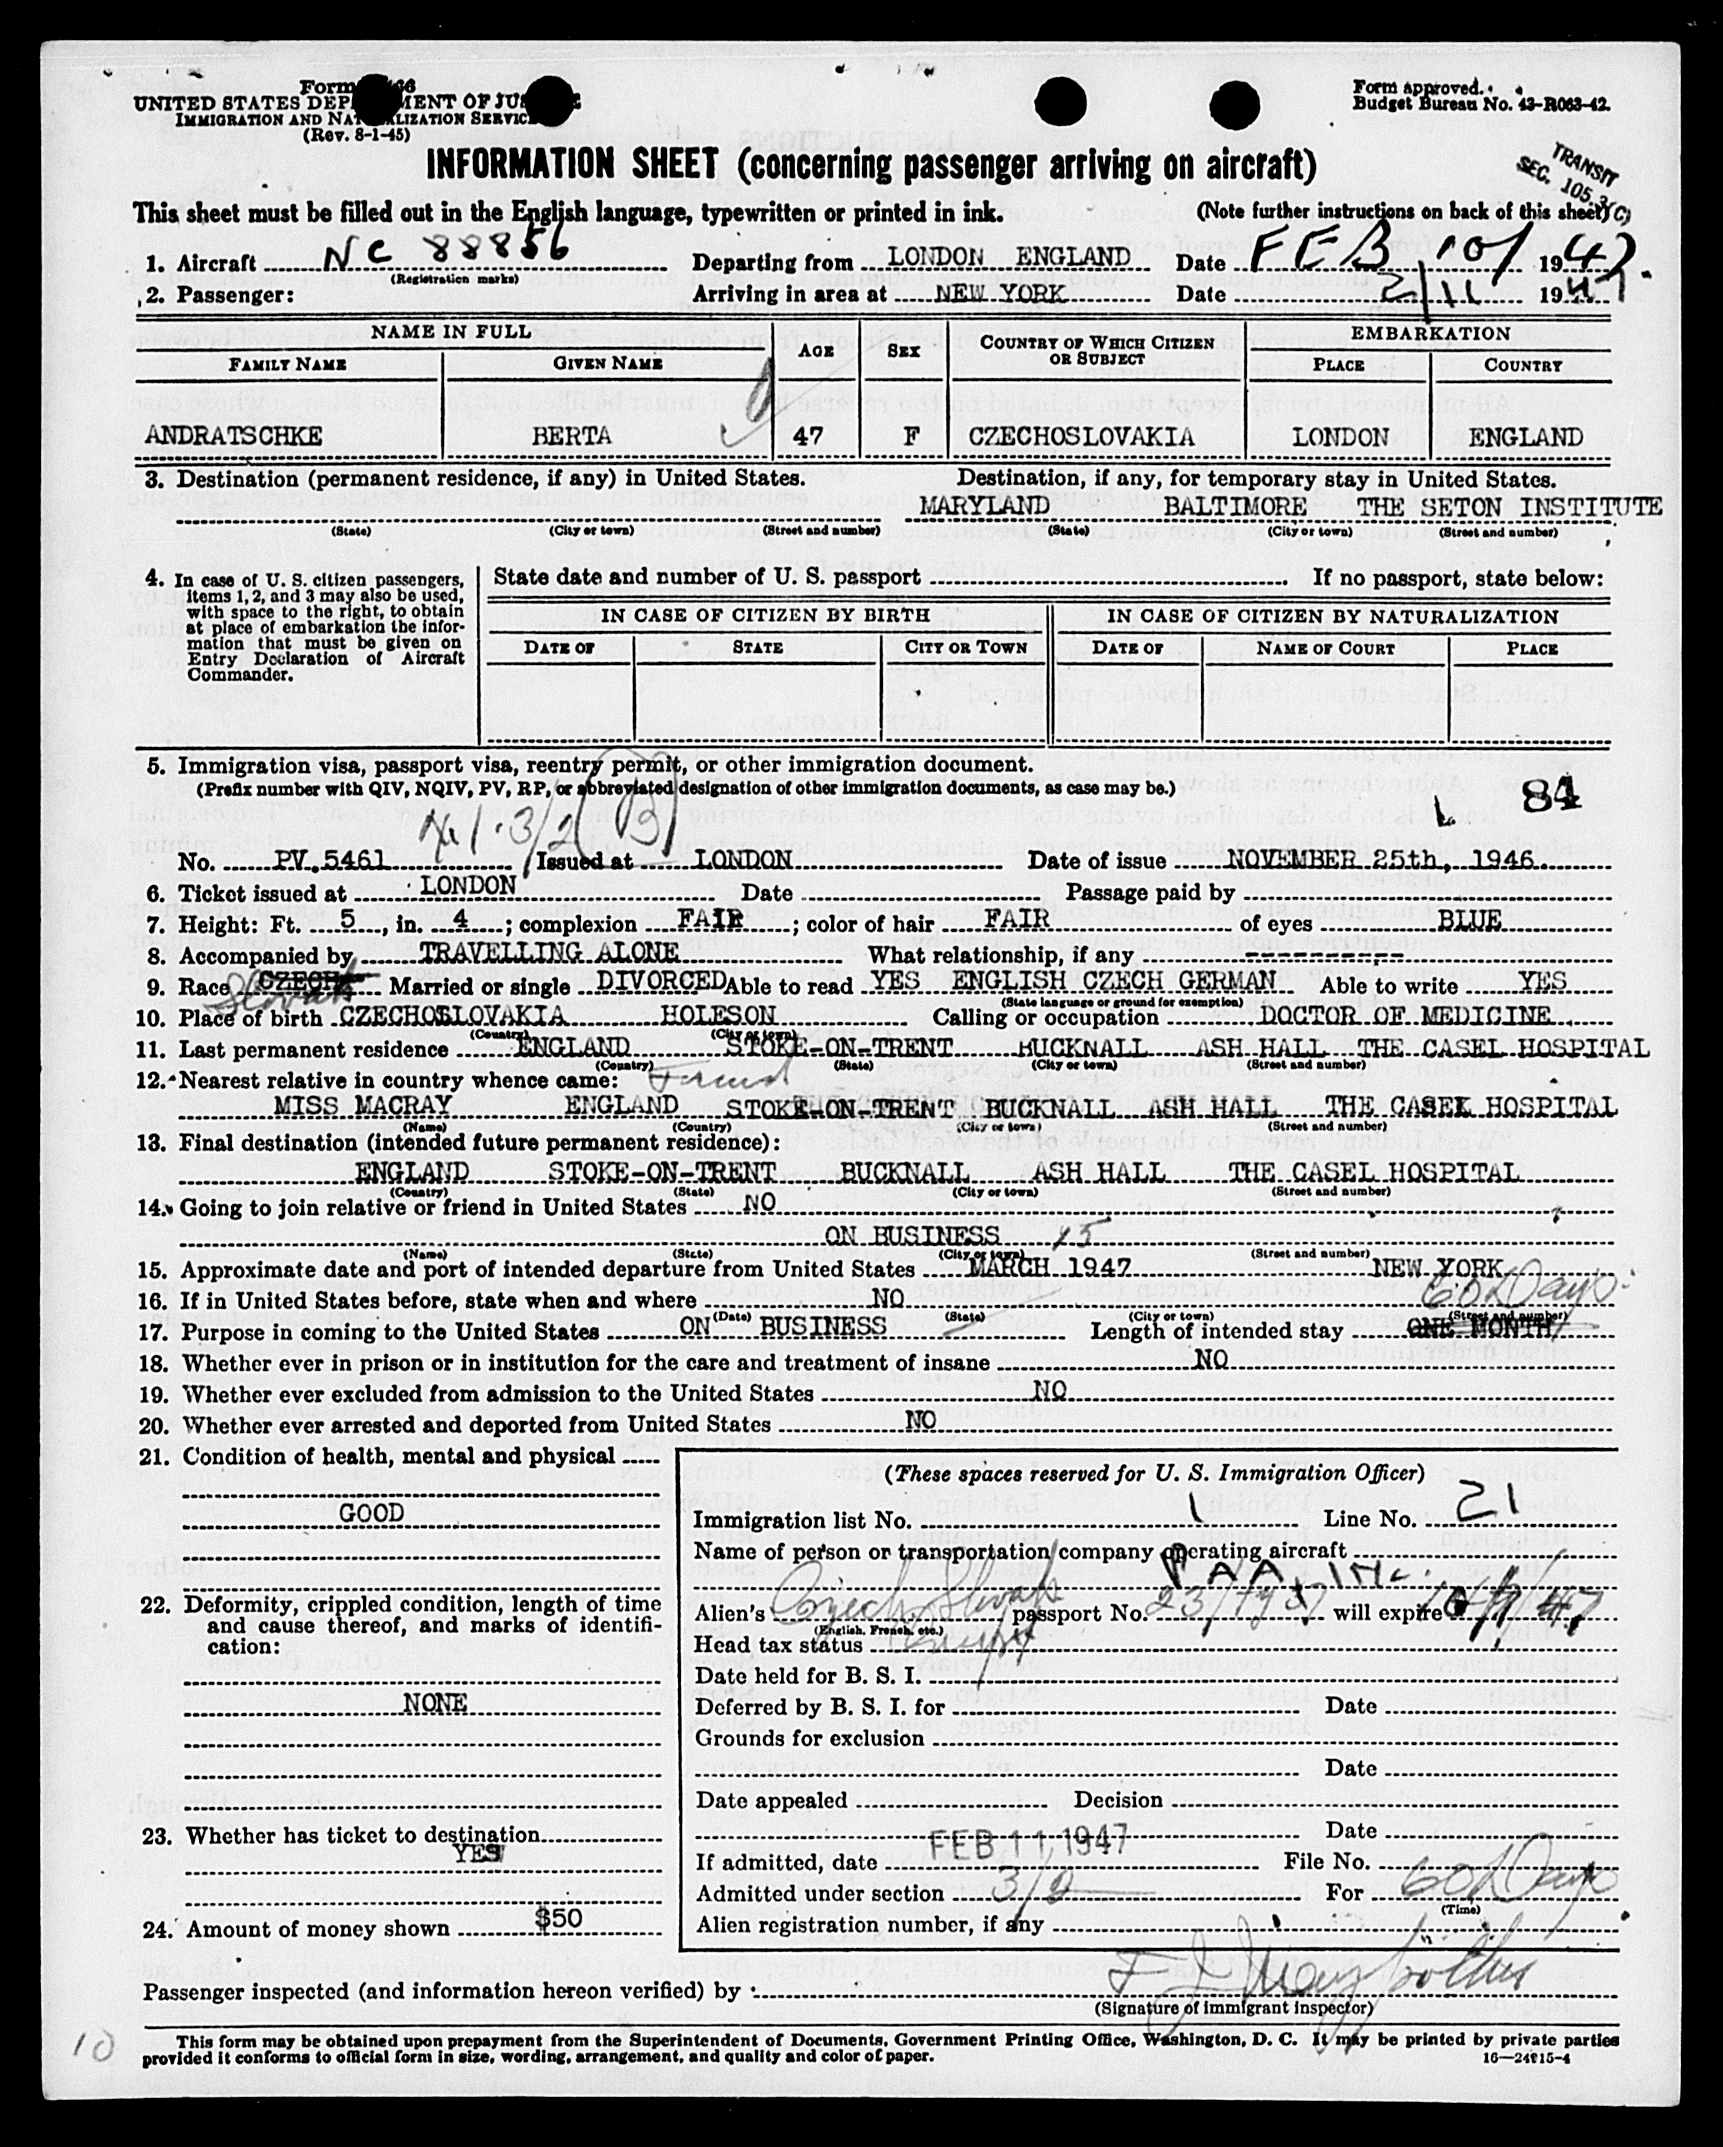 Form
UNITED STATES DEP MENT OF JUS
IMMIGRATION AND NAT LIZATION SERVIC
(Rev. 8-1-45)
Form approved.
Budget Bureau No. 43-R063-42.
INFORMATION SHEET (concerning passenger arriving on aircraft)
TRANSIT
SEC. 105.3(C)
This sheet must be filled out in the English language, typewritten or printed in ink. (Note further instructions on back of this sheet)
1. Aircraft NC 88856 Departing from LONDON ENGLAND Date FEB 10/ 1947.
(Registration marks)
2. Passenger: Arriving in area at NEW YORK Date 2/11 1947
NAME IN FULL AGE SEX COUNTRY OF WHICH CITIZEN OR SUBJECT EMBARKATION
FAMILY NAME GIVEN NAME PLACE COUNTRY
ANDRATSCHKE BERTA 47 F CZECHOSLOVAKIA LONDON ENGLAND
3. Destination (permanent residence, if any) in United States. Destination, if any, for temporary stay in United States.
MARYLAND BALTIMORE THE SETON INSTITUTE
(State) (City or town) (Street and number) (State) (City or town) (Street and number)
4. In case of U. S. citizen passengers,
items 1, 2, and 3 may also be used,
with space to the right, to obtain
at place of embarkation the infor-
mation that must be given on
Entry Declaration of Aircraft
Commander.
State date and number of U. S. passport If no passport, state below:
IN CASE OF CITIZEN BY BIRTH IN CASE OF CITIZEN BY NATURALIZATION
DATE OF STATE CITY OR TOWN DATE OF NAME OF COURT PLACE
5. Immigration visa, passport visa, reentry permit, or other immigration document.
(Prefix number with QIV, NQIV, PV, RP, or abbreviated designation of other immigration documents, as case may be.)
84
3/2 (B)
No. PV.5461 Issued at LONDON Date of issue NOVEMBER 25th, 1946.
6. Ticket issued at LONDON Date Passage paid by
7. Height: Ft. 5, in. 4; complexion FAIR; color of hair FAIR of eyes BLUE
8. Accompanied by TRAVELLING ALONE What relationship, if any ----------
9. Race CZECH Slovak Married or single DIVORCED Able to read YES ENGLISH CZECH GERMAN Able to write YES
(State language or ground for exemption)
10. Place of birth CZECHOSLOVAKIA HOLESON Calling or occupation DOCTOR OF MEDICINE
(Country) (City or town)
11. Last permanent residence ENGLAND STOKE-ON-TRENT BUCKNALL ASH HALL THE CASEL HOSPITAL
(Country) (State) (City or town) (Street and number)
12. Nearest relative in country whence came: Friend
MISS MACRAY ENGLAND STOKE-ON-TRENT BUCKNALL ASH HALL THE CASEL HOSPITAL
(Name) (Country) (City or town) (Street and number)
13. Final destination (intended future permanent residence):
ENGLAND STOKE-ON-TRENT BUCKNALL ASH HALL THE CASEL HOSPITAL
(Country) (State) (City or town) (Street and number)
14. Going to join relative or friend in United States NO
ON BUSINESS
(Name) (State) (City or town) (Street and number)
15. Approximate date and port of intended departure from United States MARCH 1947 NEW YORK
16. If in United States before, state when and where NO 60 Days
(Date) (State) (City or town) (Street and number)
17. Purpose in coming to the United States ON BUSINESS Length of intended stay ONE MONTH
18. Whether ever in prison or in institution for the care and treatment of insane NO
19. Whether ever excluded from admission to the United States NO
20. Whether ever arrested and deported from United States NO
21. Condition of health, mental and physical
GOOD
22. Deformity, crippled condition, length of time
and cause thereof, and marks of identifi-
cation:
NONE
23. Whether has ticket to destination
YES
24. Amount of money shown $50
(These spaces reserved for U. S. Immigration Officer)
Immigration list No. 1 Line No. 21
Name of person or transportation company operating aircraft
PAA, INC.
Alien's Czech Slovak passport No. will expire
(English, French, etc.)
Head tax status
Date held for B. S. I.
Deferred by B. S. I. for Date
Grounds for exclusion
Date
Date appealed Decision
Date
If admitted, date FEB 11 1947 File No.
Admitted under section 3/2 For 60 Days
(Time)
Alien registration number, if any
Passenger inspected (and information hereon verified) by
(Signature of immigrant inspector)
10
This form may be obtained upon prepayment from the Superintendent of Documents, Government Printing Office, Washington, D. C. It may be printed by private parties
provided it conforms to official form in size, wording, arrangement, and quality and color of paper. 16—24915-4